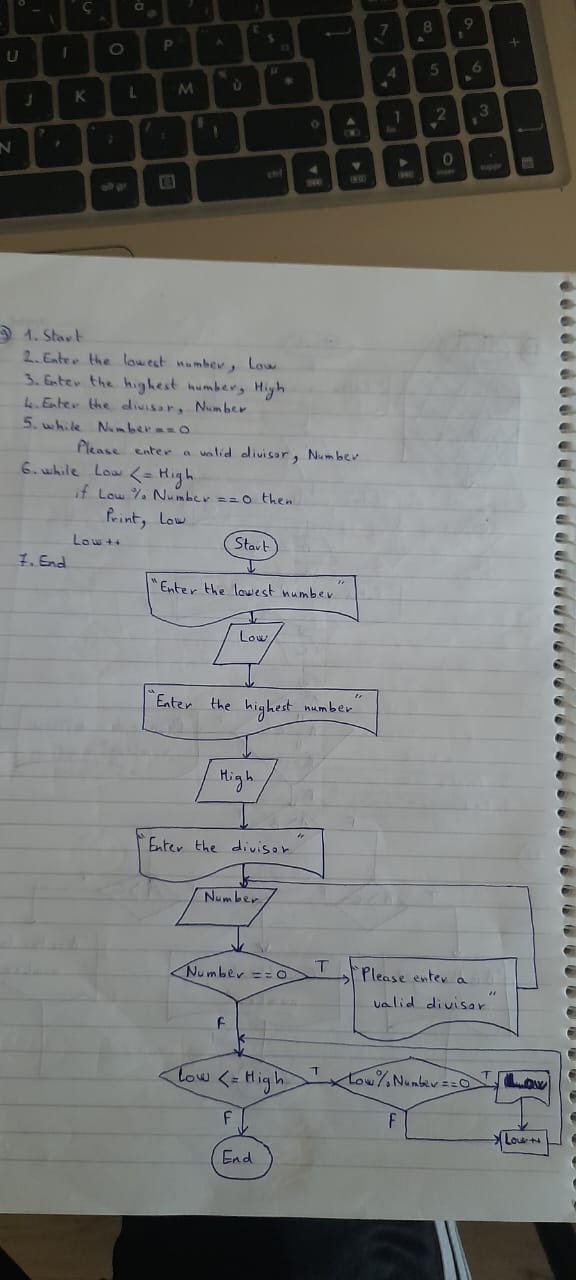 U I O P
J K L M ù *
N ? , . ; / : § !
alt gr ctrl
7 8 9 +
4 5 6
1 2 3
0
9) 1. Start
2. Enter the lowest number, Low
3. Enter the highest number, High
4. Enter the divisor, Number
5. while Number == 0
Please enter a valid divisor, Number
6. while Low <= High
if Low % Number == 0 then
Print, Low
Low ++
7. End
Start
"Enter the lowest number"
Low
"Enter the highest number"
High
"Enter the divisor"
Number
Number == 0 T "Please enter a
valid divisor"
F
Low <= High T Low % Number == 0 T Low
F F Low++
End